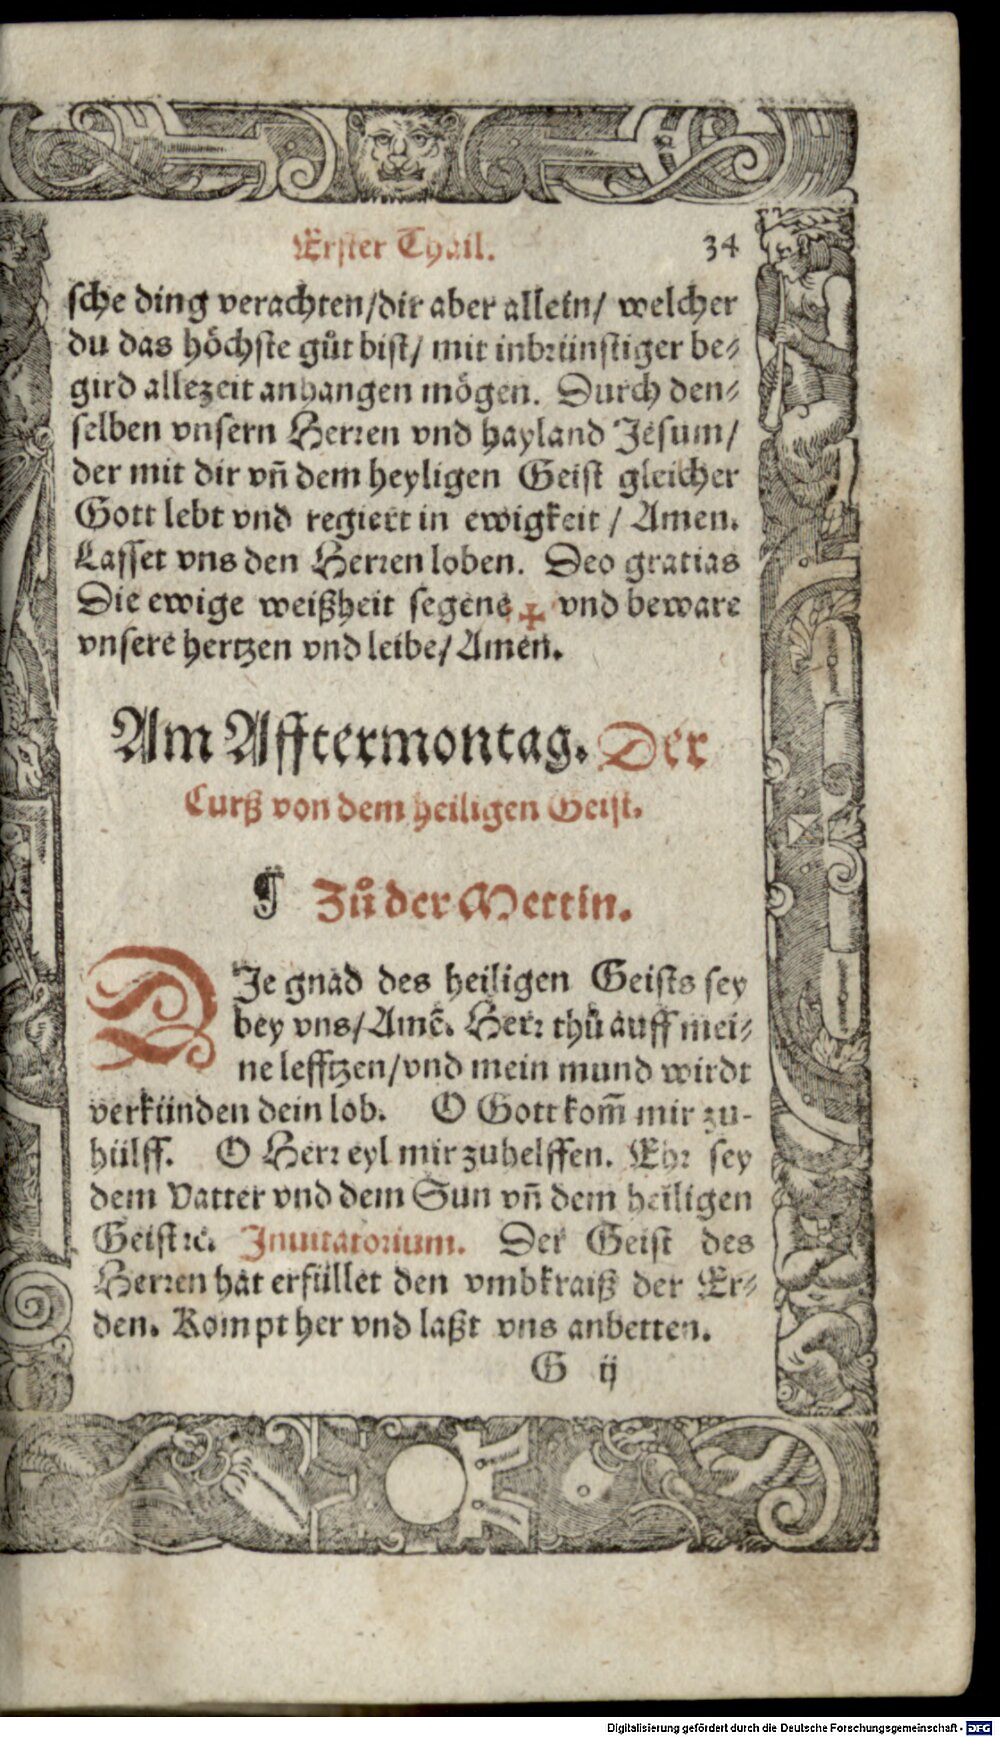 Erster Thail. 34
sche ding verachten/dir aber allein/ welcher
du das höchste gůt bist/ mit inbrünstiger be⸗
gird allezeit anhangen mögen. Durch den⸗
selben vnsern Herren vnd hayland Jesum/
der mit dir vñ dem heyligen Geist gleicher
Gott lebt vnd regiert in ewigkeit / Amen.
Lasset vns den Herren loben. Deo gratias
Die ewige weißheit segene ✠ vnd beware
vnsere hertzen vnd leibe/ Amen.
Am Afftermontag. Der
Curß von dem heiligen Geist.
¶ Zů der Mettin.
DJe gnad des heiligen Geists sey
bey vns/Amẽ. Herr thů auff mei⸗
ne lefftzen/vnd mein mund wirdt
verkünden dein lob. O Gott kom̃ mir zu-
hülff. O Herr eyl mir zuhelffen. Ehr sey
dem Vatter vnd dem Sun vñ dem heiligen
Geist ꝛc. Jnuitatorium. Der Geist des
Herren hat erfüllet den vmbkraiß der Er⸗
den. Kompt her vnd laßt vns anbetten.
G ij
Digitalisierung gefördert durch die Deutsche Forschungsgemeinschaft - DFG